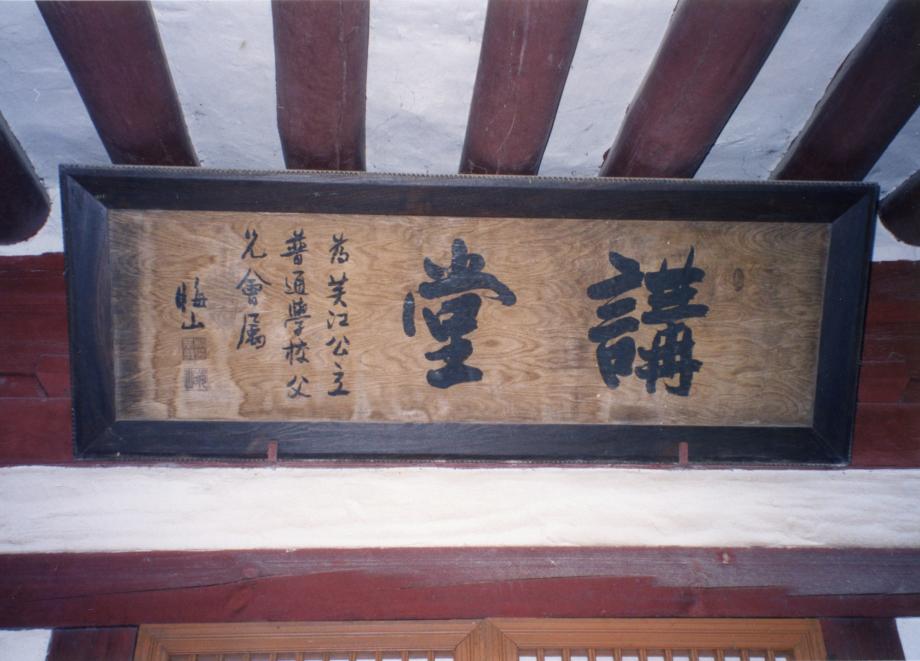 講堂
為芙江公立
普通學校父
兄會属
晦山